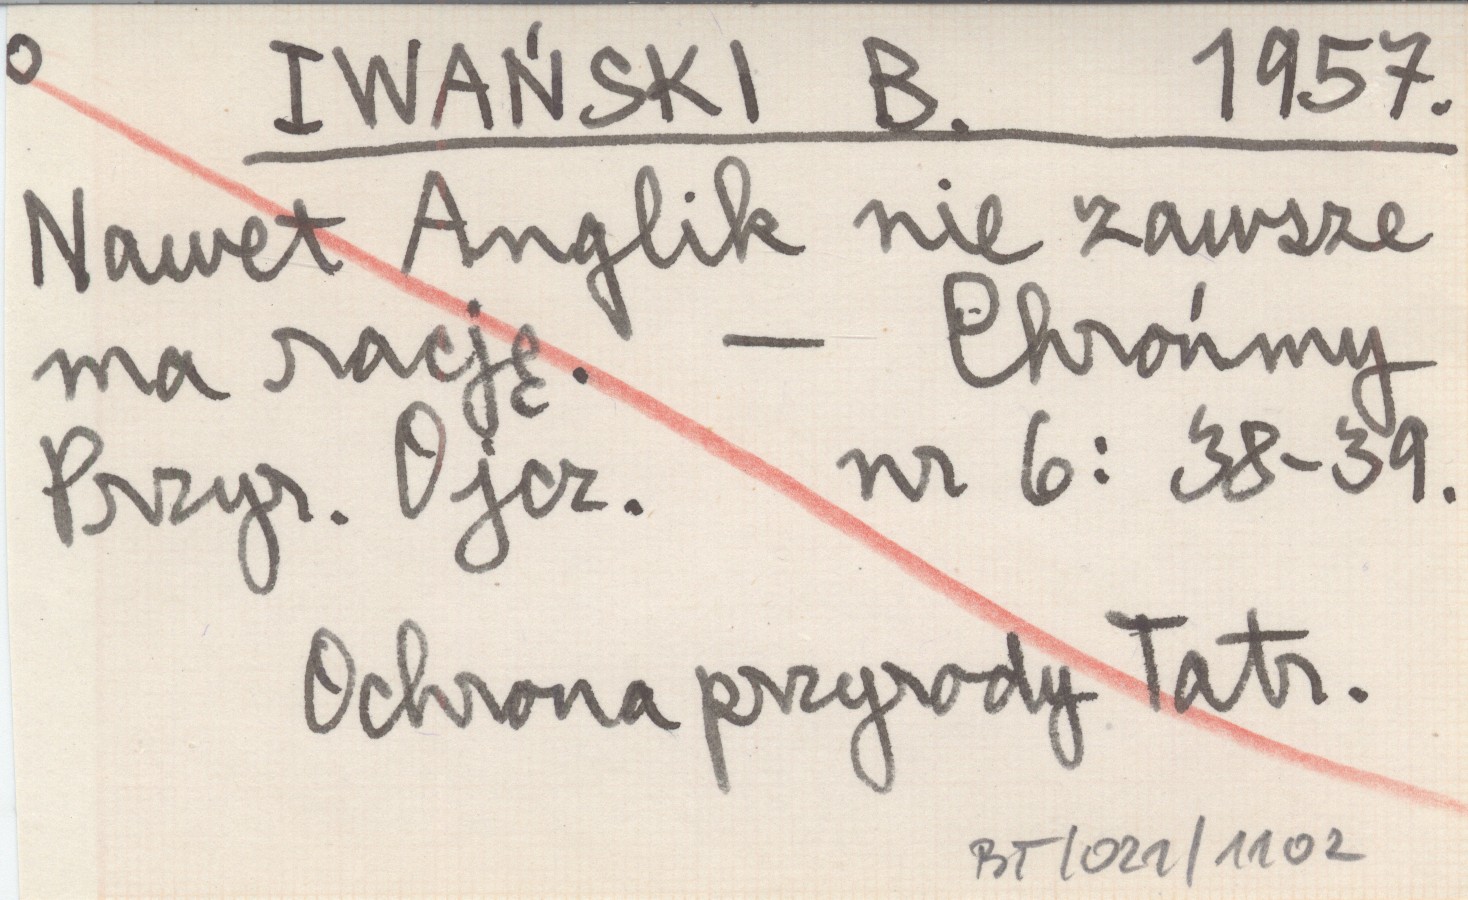 IWAŃSKI B. 1957.
Nawet Anglik nie zawsze
ma rację. — Chrońmy
Przyr. Ojcz. nr 6: 38-39.
Ochrona przyrody Tatr.
BT/021/1102